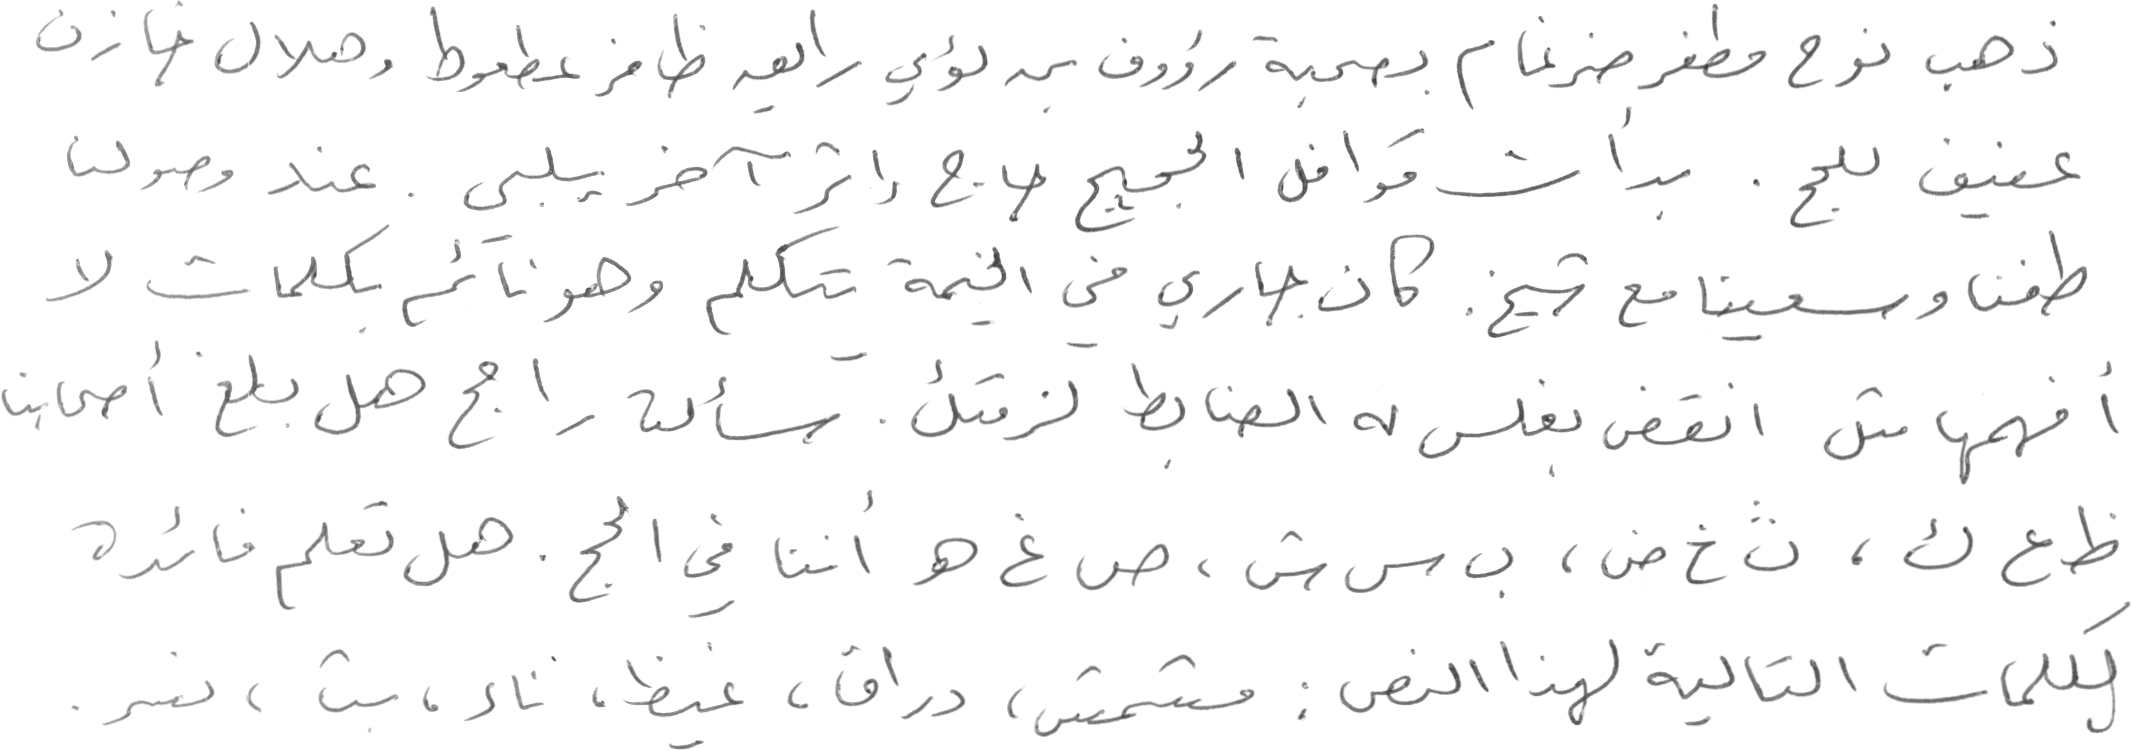 ذهب نوح مظفر ضرغام بصحبة رؤوف بن لؤي رايق ظافر عطعوط وهلال خازن
عفيف للحج. بدأت قوافل الحجيج حاج إثر آخر يلبي. عند وصولنا
طفنا وسعينا مع شيخ. كان جاري في الخيمة يتكلم وهو نائم بكلمات لا
أفهمها مثل انقض بغلس له الضابط لزمتئ. سألت راجح هل بلغ أصحابنا
ظ ع ك، ث خ ض، ب س ش، ص غ ه أننا في الحج. هل تعلم فائدة
الكلمات التالية لهذا النص: مشمش، دراق، غيظ، ناء، بث، نسر.